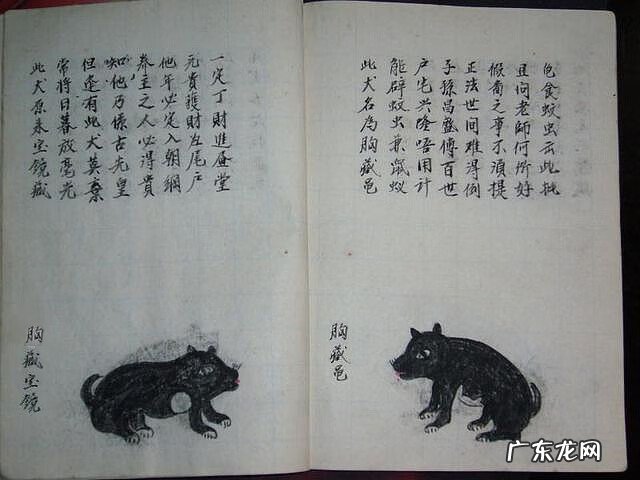 此犬原来宝鏡藏
常将日暮放毫光
但逢有此犬莫棄
知他乃係古先皇
养主之人必得貴
他年必定入朝綱
元貴獲財左尾户
一定丁財進盈堂
胸藏宝鏡
此犬名為胸藏邑
能辟蚊虫兼鼠蚁
户宅兴隆唔用计
子孫昌盛傳百世
正法世间难得例
之事不須提
且问老師何所好
包食蚊虫云此
胸藏邑
广东龙网